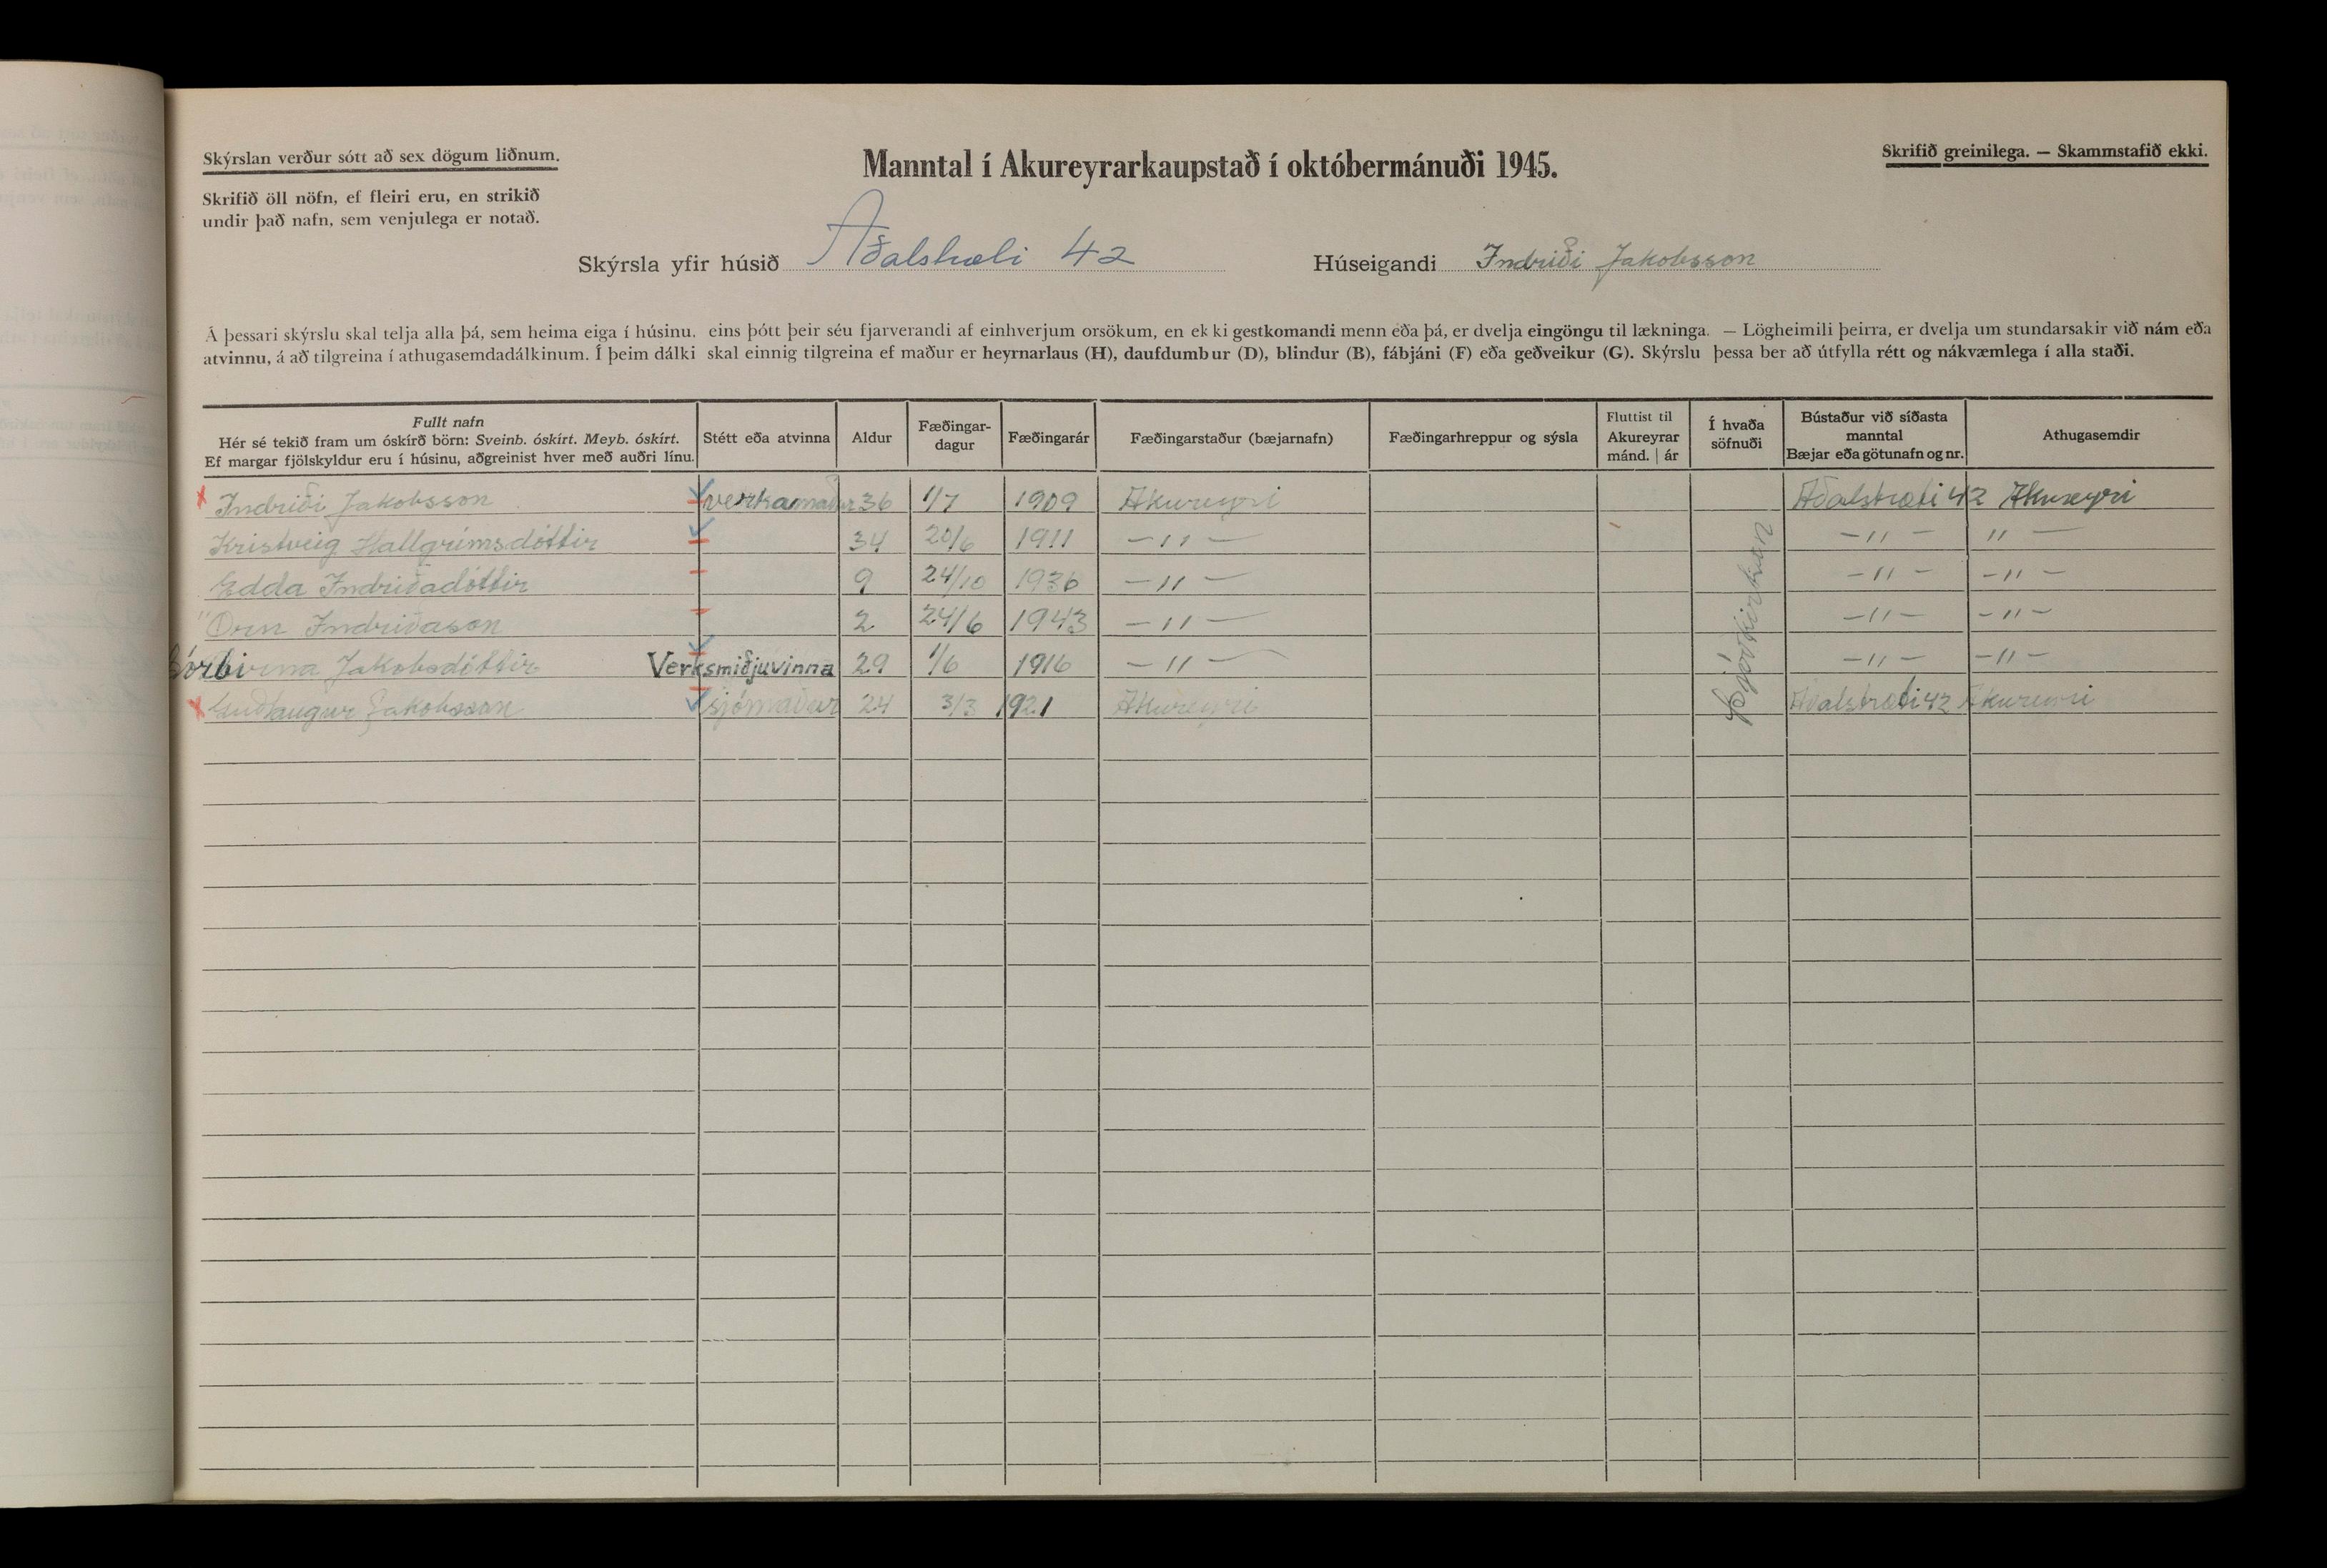 Skýrslan verður sótt að sex dögum liðnum.
Skrifið öll nöfn, ef fleiri eru, en strikið
undir það nafn, sem venjulega er notað.
Manntal í Akureyrarkaupstað í októbermánuði 1945.
Skrifið greinilega. — Skammstafið ekki.
Skýrsla yfir húsið Aðalstræti 42 Húseigandi Indriði Jakobsson
Á þessari skýrslu skal telja alla þá, sem heima eiga í húsinu, eins þótt þeir séu fjarverandi af einhverjum orsökum, en ekki gestkomandi menn eða þá, er dvelja eingöngu til lækninga. — Lögheimili þeirra, er dvelja um stundarsakir við nám eða
atvinnu, á að tilgreina í athugasemdadálkinum. Í þeim dálki skal einnig tilgreina ef maður er heyrnarlaus (H), daufdumbur (D), blindur (B), fábjáni (F) eða geðveikur (G). Skýrslu þessa ber að útfylla rétt og nákvæmlega í alla staði.
Fullt nafn
Hér sé tekið fram um óskírð börn: Sveinb. óskírt. Meyb. óskírt.
Ef margar fjölskyldur eru í húsinu, aðgreinist hver með auðri línu.
Stétt eða atvinna
Aldur
Fæðingar-
dagur
Fæðingarár
Fæðingarstaður (bæjarnafn)
Fæðingarhreppur og sýsla
Fluttist til
Akureyrar
mánd. | ár
Í hvaða
söfnuði
Bústaður við síðasta
manntal
Bæjar eða götunafn og nr.
Athugasemdir
Indriði Jakobsson verkamaður 36 1/7 1909 Akureyri Aðalstræti 42 Akureyri
Kristveig Hallgrímsdóttir 34 20/6 1911 — " — — " — " —
Edda Indriðadóttir 9 24/10 1936 — " — — " — — " —
Örn Indriðason 2 24/6 1943 — " — — " — — " —
Þórbirna Jakobsdóttir Verksmiðjuvinna 29 1/6 1916 — " — — " — — " —
Guðlaugur Jakobsson sjómaður 24 3/3 1921 Akureyri Aðalstræti 42 Akureyri
Þjóðkirkjan